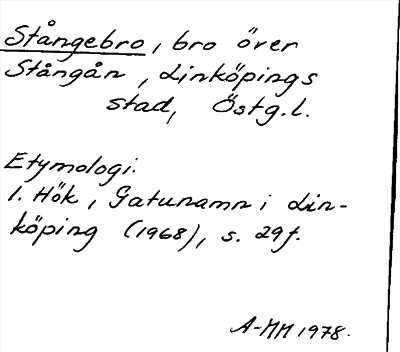 Stångebro, bro över
Stångån, Linköpings
stad, Östg.l.
Etymologi.
I. Hök, Gatunamn i Lin-
köping (1968), s. 29f.
A-MM 1978.